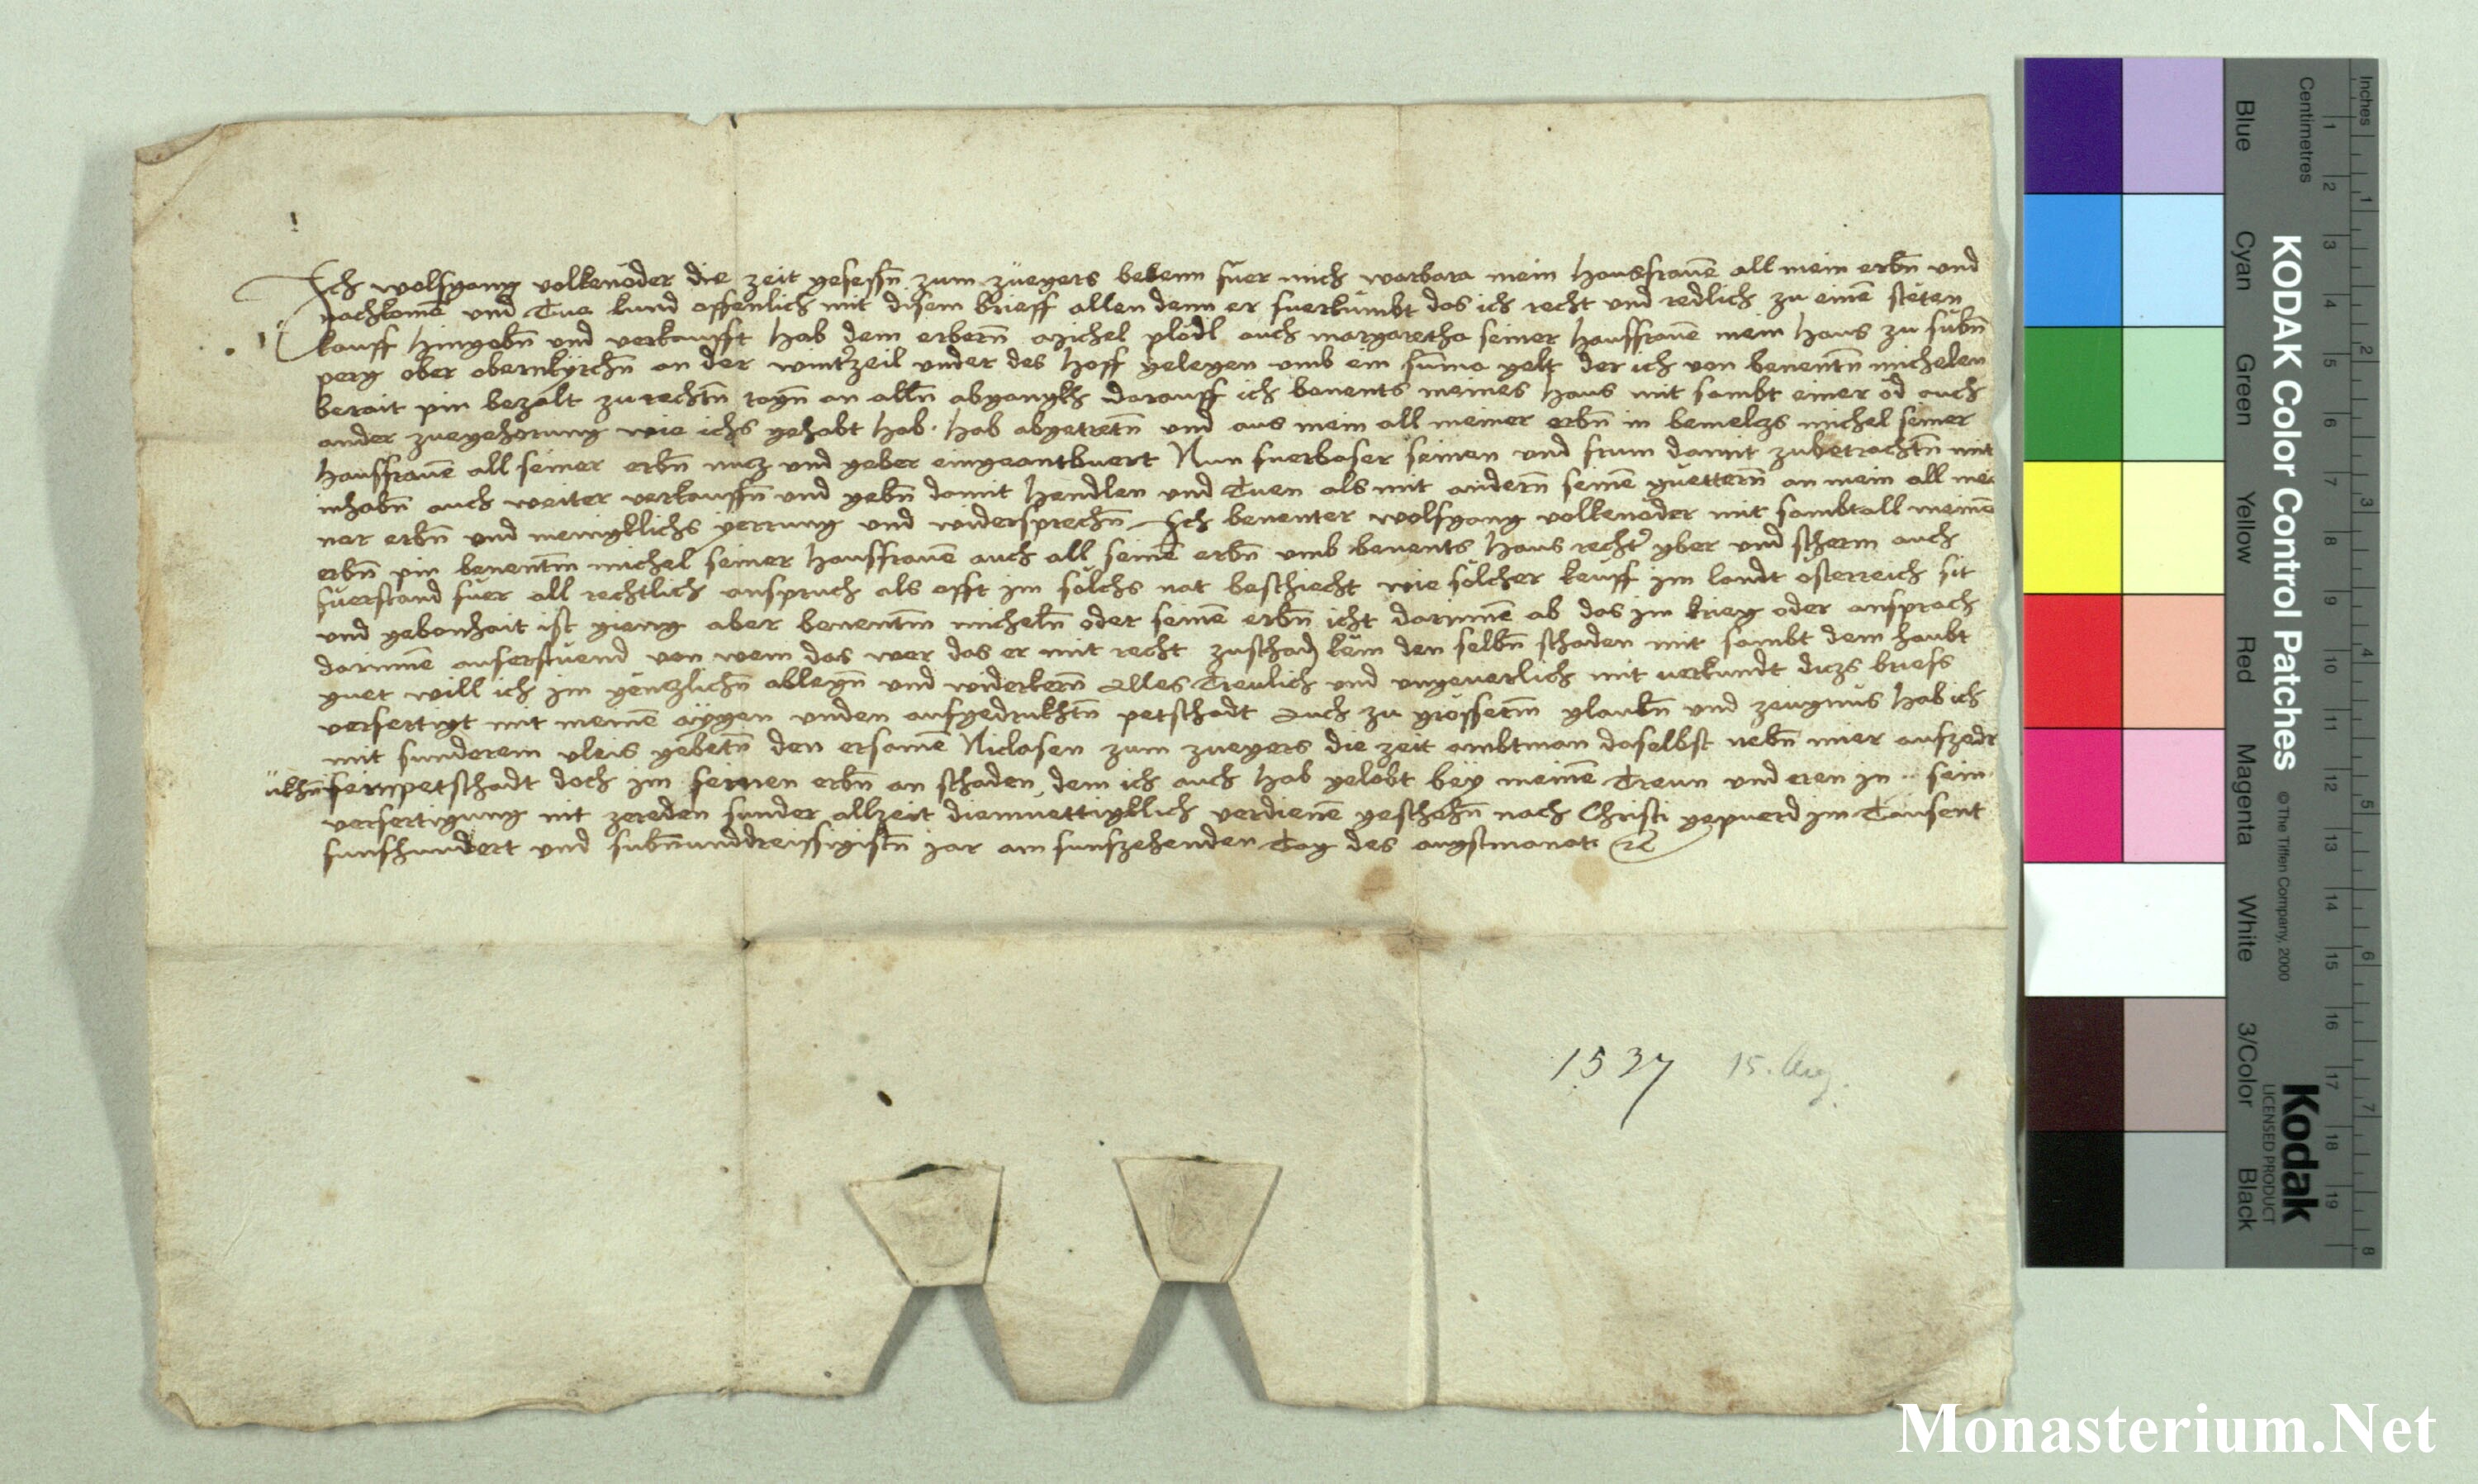 Ich wolfgang volkenöder die zeit gesessn̄ zum züegers bekenn fuer mich warbara mein hausfrauē all mein erbn̄ und
nachkomē und Tue kund offenlich mit disem brieff allen denn er fuerkumbt das ich recht und redlich zu einē stëten
kauff hingebn̄ und verkaufft hab dem erbern̄ michel plödl auch margaretha seiner hausfrauē mein haus zu sübn̄
perg ober obernkÿrchn̄ an der wintzeil under des hoff gelegen umb ein suma gelt der ich von benentn̄ michelen
berait pin bezalt zu rechtn̄ tagn̄ an alln̄ abgangkh darauff ich benents meines haus mit sambt einer öd auch
ander zuegehorung wie ichs gehabt hab hab abgetretn̄ und aus mein all meiner erbn̄ in bemelczs michel seiner
hausfrauē all seiner erbn̄ nucz und geber eingeantbuert Nun fuerbaser seinen und frum damit zubetrachtn̄ mit
inhabn̄ auch weiter verkauffn̄ und gebn̄ damit handlen und Tuen als mit andern̄ seinē guettern̄ an mein all mei
ner erbn̄ und menigklichs yerrung und widersprechn̄ Ich benenter wolfgang volkenöder mit sambt all meinē
erbn̄ pin benentm̄ michel seiner hausfrauē auch all seinē erbn̄ umb benents haus rechter gber und scherm auch
füerstand füer all rechtlich anspruch als offt im sölchs nat beschiecht wie sölcher kauff im landt österreich sit
und gebonhait ist gieng aber benentm̄ micheln̄ oder seinē erbn̄ icht darinnē ab das im krieg oder ansprach
darinnē auferstüend von wem das wer das er mit recht zu schadn̄ këm den selbn̄ schaden mit sambt dem haubt
guet will ich im gënczlichn̄ ablegn̄ und widerkern̄ Alles Treulich und ungeuerlich mit uerkundt diczs briefs
verfertigt mit meinē aÿgen unden aufgedrukhtn̄ petschadt Auch zu grösserm̄ glaubn̄ und zeugnüs hab ich
mit sunderem vleis gebetn̄ den ersamē Niclasen zum zuegers die zeit ambtman daselbst nebn̄ mier aufzedr
ükhn̄ sein petschadt doch im seinen erbn̄ an schaden dem ich auch hab gelobt beÿ meinē Treun und eren in sein
verfertigung nit zereden sunder allzeit diemuettigklich verdienē geschehn̄ nach Christi gepuerd im Tausent
funfhundert und subn̄unddreissigistn̄ jar am funfzehenden Tag des augstmonats rc
1537 15. Aug.
KODAK Color Control Patches
© The Tiffen Company, 2000
Kodak
LICENSED PRODUCT
Inches 1 2 3 4 5 6 7 8
Centimetres 1 2 3 4 5 6 7 8 9 10 11 12 13 14 15 16 17 18 19
Blue Cyan Green Yellow Red Magenta White 3/Color Black
Monasterium.Net